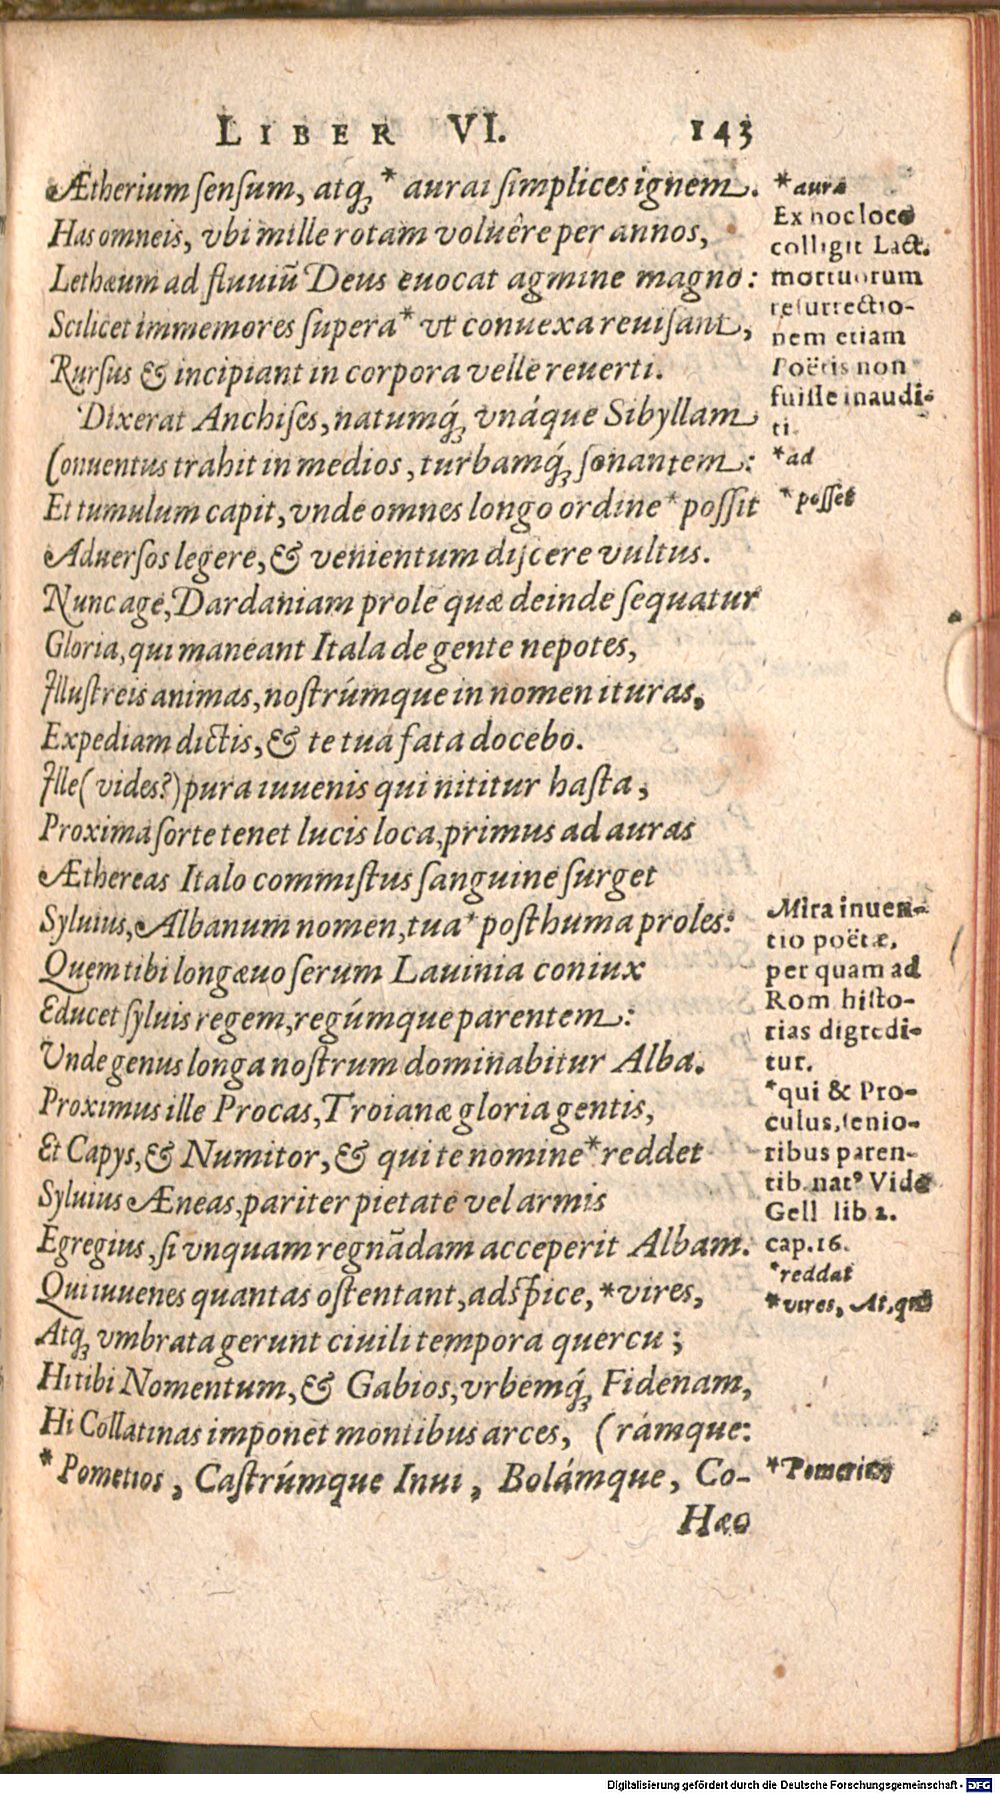 LIBER VI. 143
Ætherium sensum, atq́ꝫ * aurai simplices ignem.
Has omneis, vbi mille rotam voluêre per annos,
Lethæum ad fluuiũ Deus euocat agmine magno:
Scilicet immemores supera* vt conuexa reuisant,
Rursus & incipiant in corpora velle reuerti.
Dixerat Anchises, natumq́ꝫ vnáque Sibyllam
Conuentus trahit in medios, turbamq́ꝫ sonantem:
Et tumulum capit, vnde omnes longo ordine* possit
Aduersos legere, & venientum discere vultus.
Nunc age, Dardaniam prole quæ deinde sequatur
Gloria, qui maneant Itala de gente nepotes,
Illustreis animas, nostrúmque in nomen ituras,
Expediam dictis, & te tua fata docebo.
Ille (vides?) pura iuuenis qui nititur hasta,
Proxima sorte tenet lucis loca, primus ad auras
Æthereas Italo commistus sanguine surget
Syluius, Albanum nomen, tua* posthuma proles:
Quem tibi longæuo serum Lauinia coniux
Educet syluis regem, regúmque parentem:
Vnde genus longa nostrum dominabitur Alba.
Proximus ille Procas, Troianæ gloria gentis,
Et Capys, & Numitor, & qui te nomine* reddet
Syluius Æneas, pariter pietate vel armis
Egregius, si vnquam regnãdam acceperit Albam.
Qui iuuenes quantas ostentant, adspice, *vires,
Atqꝫ vmbrata gerunt ciuili tempora quercu;
Hi tibi Nomentum, & Gabios, vrbemq́ꝫ Fidenam,
Hi Collatinas imponet montibus arces, (rámque:
* Pometios, Castrúmque Inui, Bolámque, Co-
Hæc
*aura
Ex hoc loco
colligit Lact.
mortuorum
resurrectio-
nem etiam
Poëtis non
fuisse inaudi-
ti.
*ad
*posset
Mira inuen-
tio poëtæ,
per quam ad
Rom histo-
rias digredi-
tur.
*qui & Pro-
culus, senio-
ribus paren-
tib. natꝰ Vide
Gell lib 2.
cap. 16.
*reddat
*vires, At, qui
*Pometios
Digitalisierung gefördert durch die Deutsche Forschungsgemeinschaft - DFG